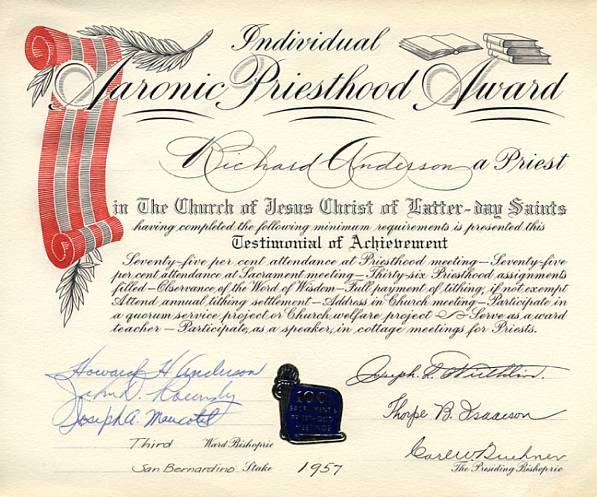 Individual
Aaronic Priesthood Award
Richard Anderson a Priest
in The Church of Jesus Christ of Latter-day Saints
having completed the following minimum requirements is presented this
Testimonial of Achievement
Seventy-five per cent attendance at Priesthood meeting—Seventy-five
per cent attendance at Sacrament meeting—Thirty-six Priesthood assignments
filled—Observance of the Word of Wisdom—Full payment of tithing, if not exempt
Attend annual tithing settlement—Address in Church meeting—Participate in
a quorum service project or Church welfare project — Serve as a ward
teacher — Participate, as a speaker, in cottage meetings for Priests.
Howard H Anderson
John D.
Joseph A.
100
SACRAMENT &
PRIESTHOOD
MEETINGS
Joseph L. Wirthlin.
Thorpe B. Isaacson
Carl W. Buehner
The Presiding Bishopric
Third Ward Bishopric
San Bernardino Stake 1957